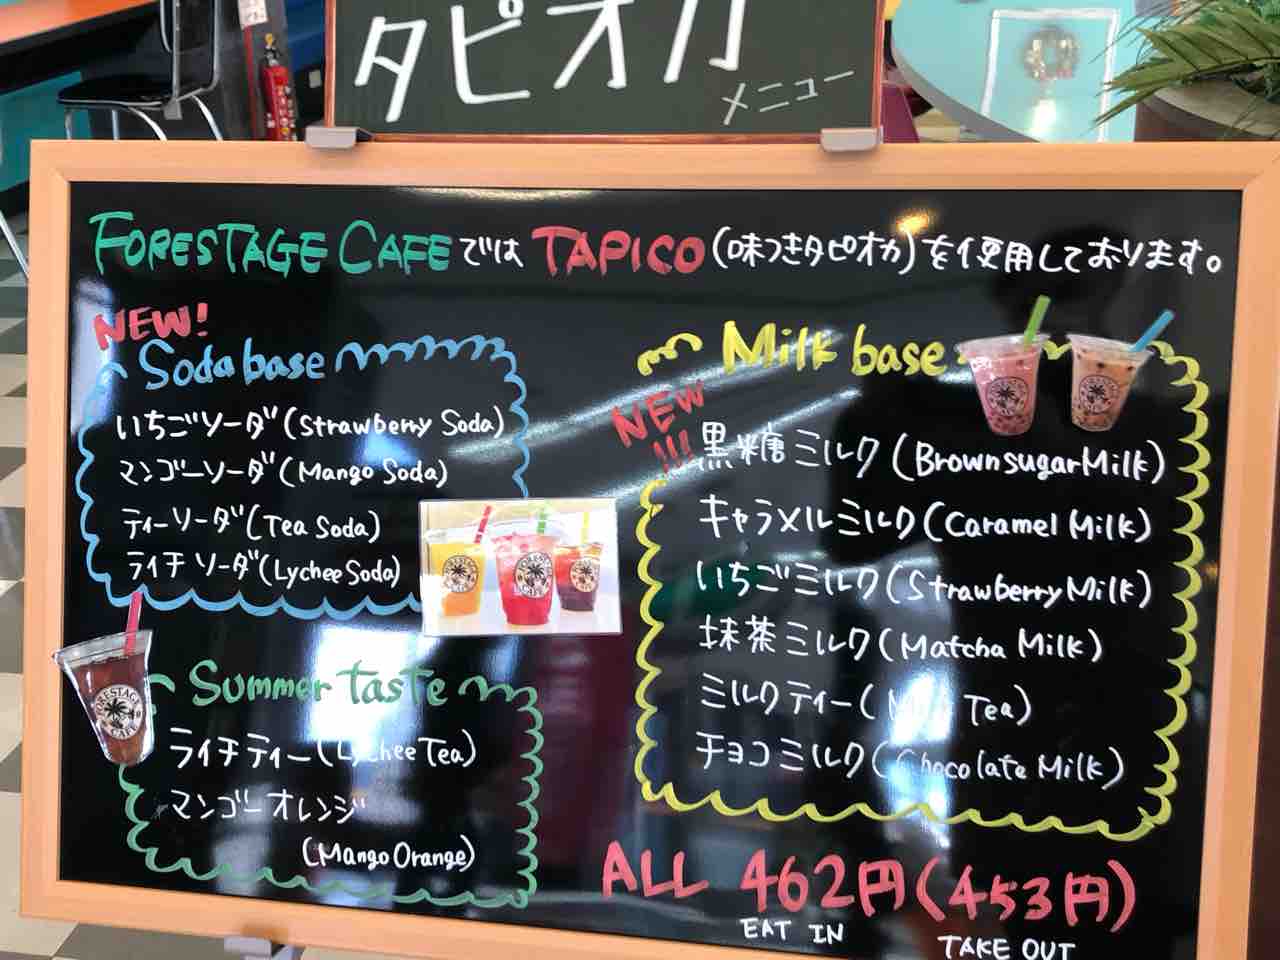 タピオカ
メニュー
FORESTAGE CAFEでは TAPICO(味つきタピオカ)を使用しております。
NEW!
Soda base
いちごソーダ(Strawberry Soda)
マンゴーソーダ(Mango Soda)
ティーソーダ(Tea Soda)
ライチソーダ(Lychee Soda)
Summer taste
ライチティー(Lychee Tea)
マンゴーオレンジ
(Mango Orange)
Milk base
NEW!!!
黒糖ミルク(Brown sugar Milk)
キャラメルミルク(Caramel Milk)
いちごミルク(Strawberry Milk)
抹茶ミルク(Matcha Milk)
ミルクティー(Milk Tea)
チョコミルク(Chocolate Milk)
ALL 462円(453円)
EAT IN TAKE OUT
FORESTAGE CAFE
FORESTAGE CAFE